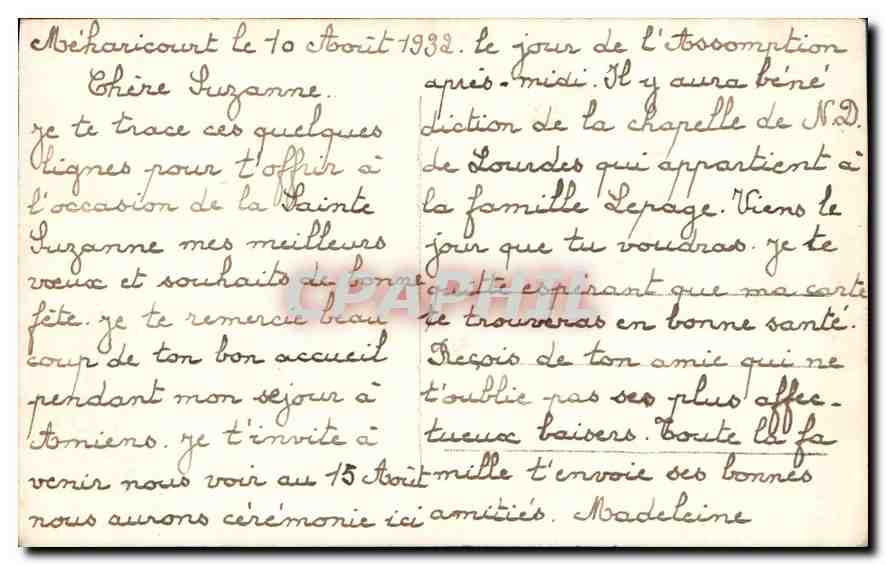 Méharicourt le 10 Août 1932.
Chère Suzanne.
je te trace ces quelques
lignes pour t'offrir à
l'occasion de la Sainte
Suzanne mes meilleurs
vœux et souhaits de bonne
fête. je te remercie beau
coup de ton bon accueil
pendant mon sejour à
Amiens. je t'invite à
venir nous voir au 15 Août
nous aurons cérémonie ici
le jour de l'Assomption
après-midi. Il y aura béné
diction de la chapelle de N.D.
de Lourdes qui appartient à
la famille Lepage. Viens le
jour que tu voudras. je te
quitte espérant que ma carte
te trouveras en bonne santé.
Reçois de ton amie qui ne
t'oublie pas ses plus affec-
tueux baisers. Toute la fa
mille t'envoie ses bonnes
amitiés. Madeleine
CPAPHIL